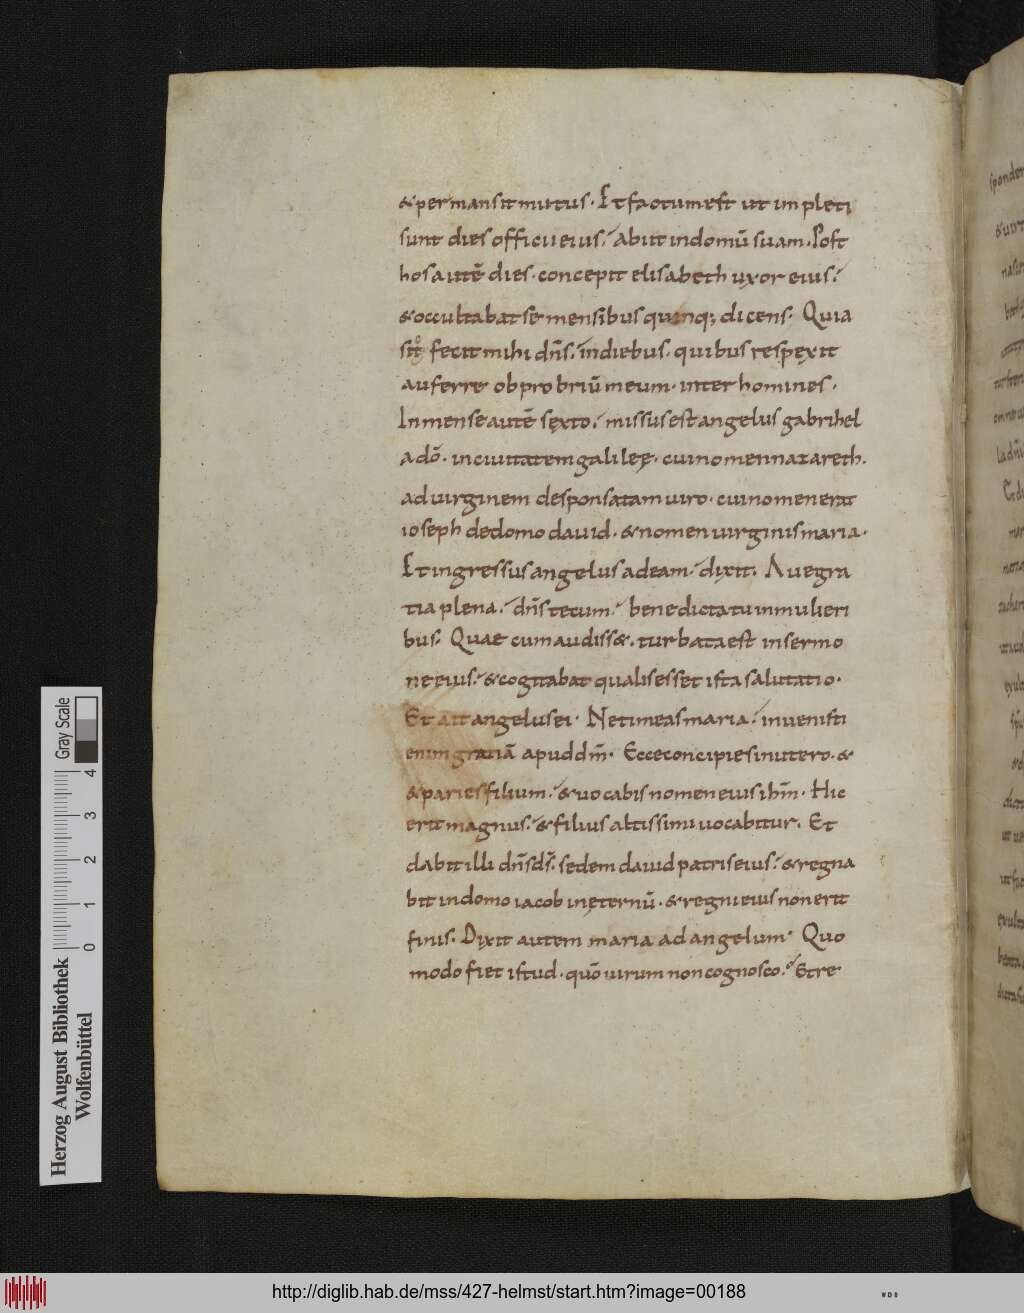 & permansit mutus. Et factum est ut impleti
sunt dies officii eius, abiit in domū suam. Post
hos autē dies. concepit elisabeth uxor eius,
& occultabat se mensibus quinq; dicens. Quia
sic fecit mihi dn̄s, in diebus. quibus respexit
auferre obprobriū meum. inter homines.
In mense autē sexto, missus est angelus gabrihel
a dō. in ciuitatem galileę. cui nomen nazareth.
ad uirginem desponsatam uiro. cui nomen erat
ioseph de domo dauid. & nomen uirginis maria.
Et ingressus angelus ad eam, dixit. Aue gra
tia plena, dn̄s tecum, benedicta tu in mulieri
bus. Quae cum audiss&, turbata est in sermo
ne eius, & cogitabat qualis esset ista salutatio.
Et ait angelus ei. Ne timeas maria, inuenisti
enim gratiā apud dm̄. Ecce concipies in utero. &
& paries filium, & uocabis nomen eius ihm̄. Hic
erit magnus, & filius altissimi uocabitur. Et
dabit illi dn̄s ds̄, sedem dauid patris eius, & regna
bit in domo iacob in ęternū. & regni eius non erit
finis. Dixit autem maria ad angelum. Quo
modo fiet istud. quō uirum non cognosco, Et re
sponden
Herzog August Bibliothek
Wolfenbüttel
Gray Scale
0 1 2 3 4
http://diglib.hab.de/mss/427-helmst/start.htm?image=00188